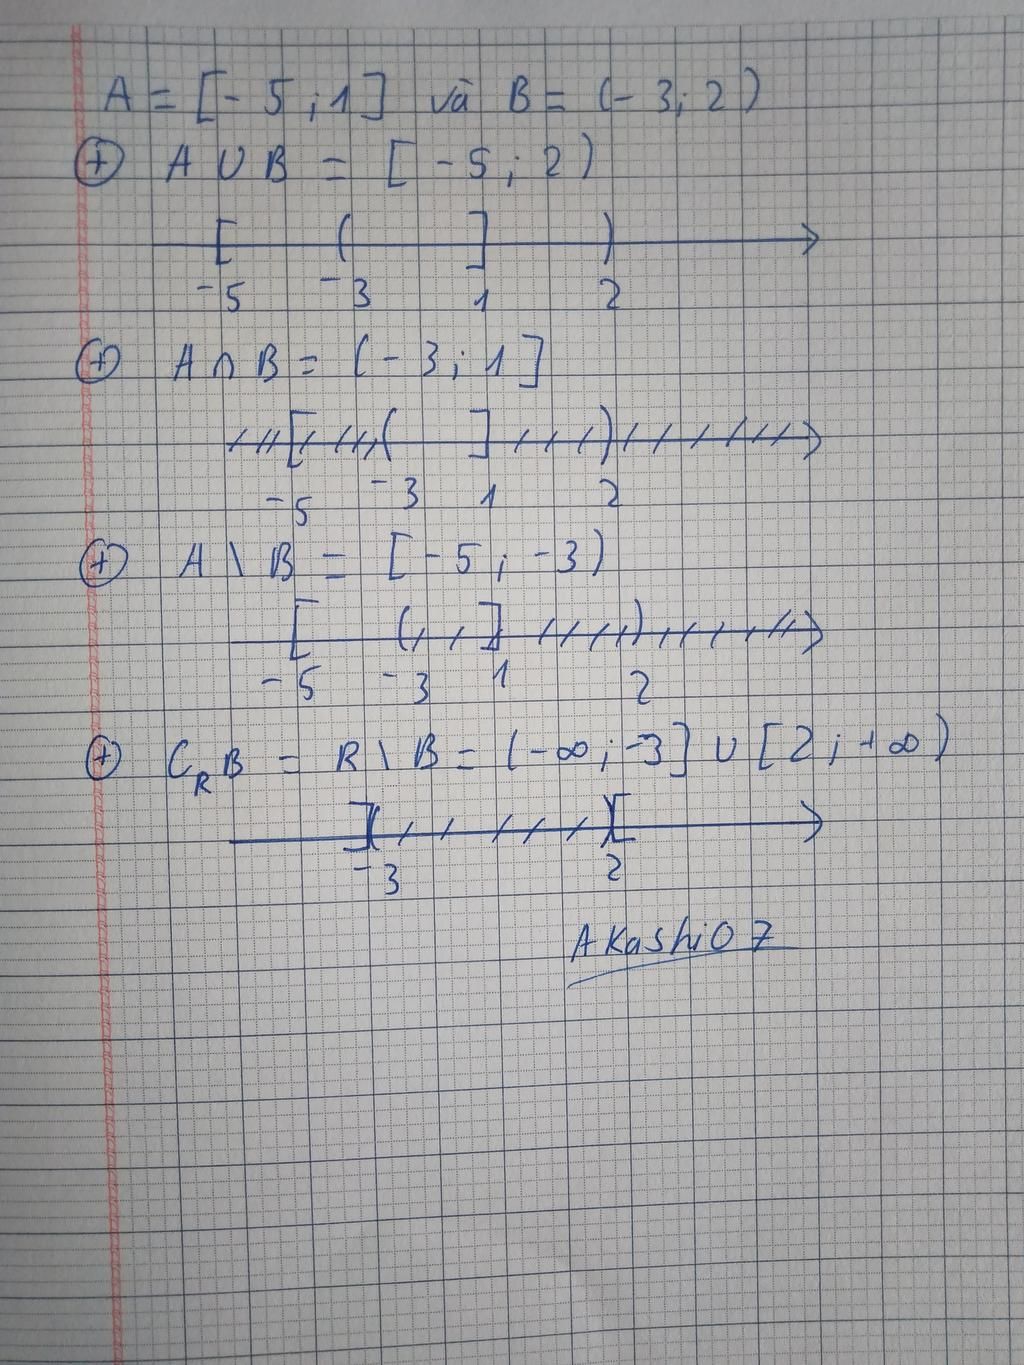 A = [- 5 ; 1] và B = (- 3 ; 2)
(+) A ∪ B = [ -5 ; 2)
-5 -3 1 2
(+) A ∩ B = (- 3 ; 1]
-5 -3 1 2
(+) A \ B = [-5 ; -3)
-5 -3 1 2
(+) C_R B = R \ B = (-∞ ; -3] ∪ [2 ; +∞)
-3 2
Akashi07